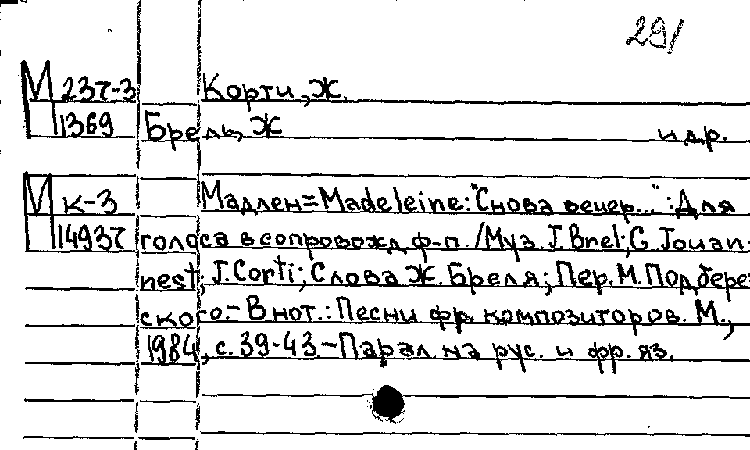 291
М 237-3 Корти, Ж.
П 1369 Брель, Ж и др.
М к-3 Мадлен=Madeleine: "Снова вечер..." : Для
П 14937 голоса в сопровожд. ф-п. / Муз. J. Brel; G. Jouan-
nest; J. Corti; Слова Ж. Бреля; Пер. М. Подбере
ского.- В нот.: Песни фр. композиторов. М.,
1984, с. 39-43.-Парал. на рус. и фр. яз.